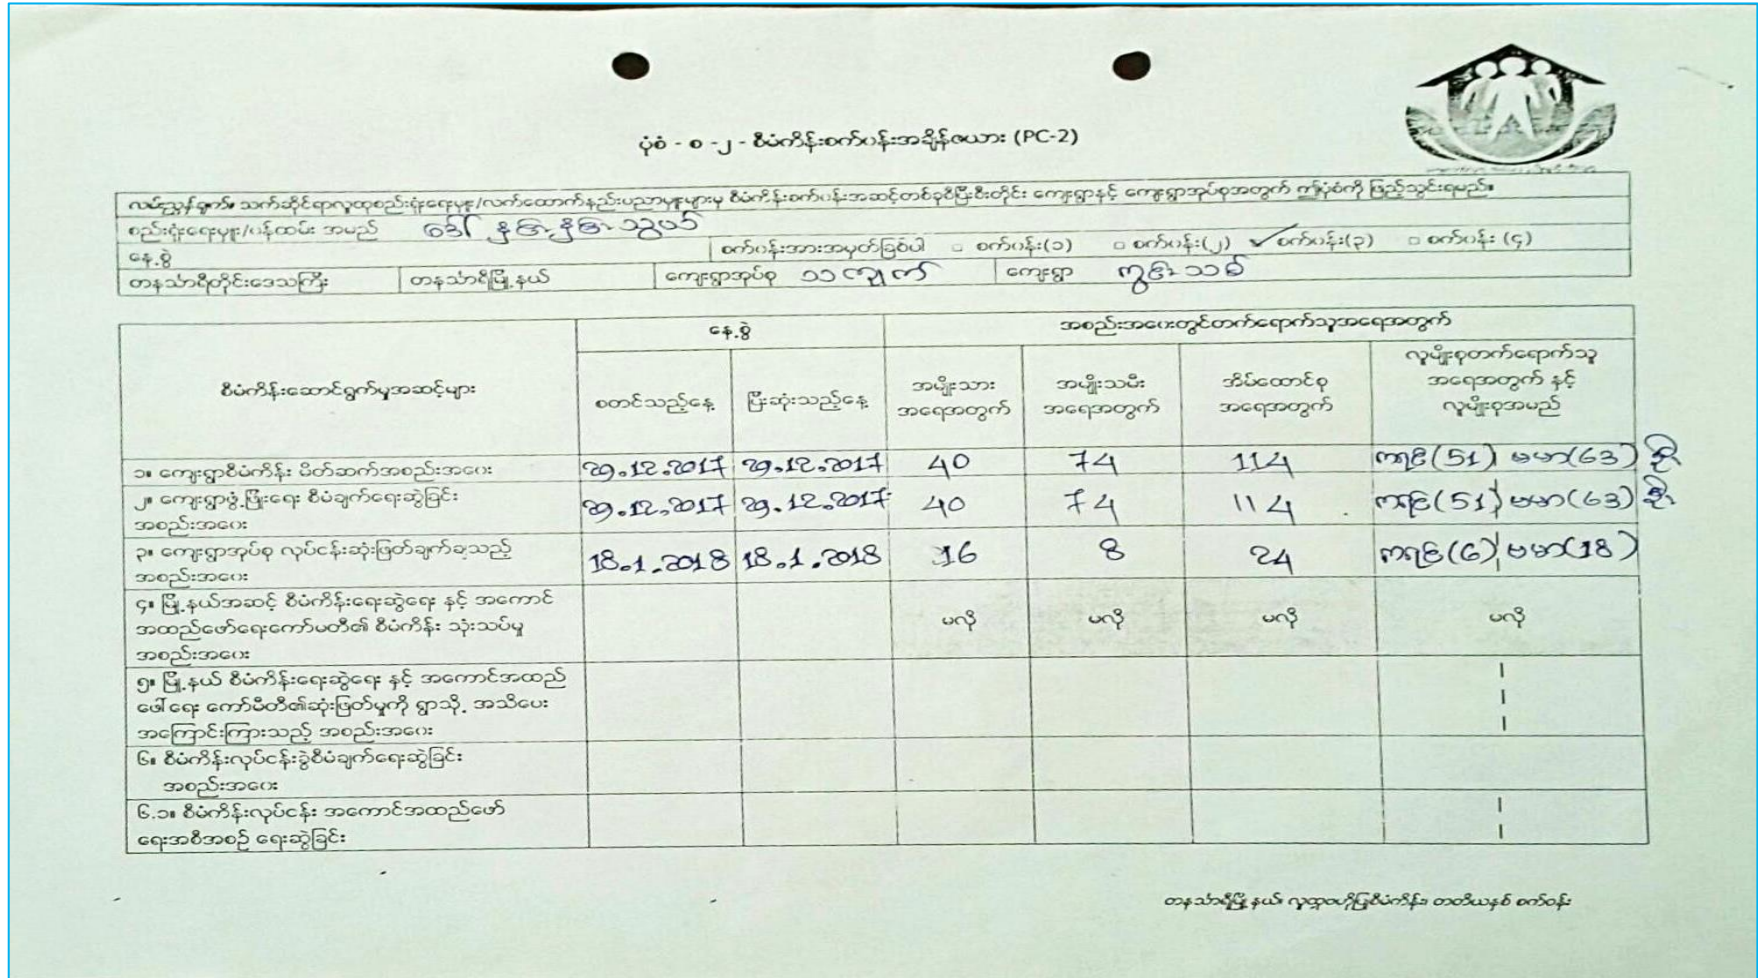 ပုံစံ - စ -၂ - စီမံကိန်းစက်ပန်းအချိန်ဇယား (PC-2)
လမ်းညွှန်ချက်။ သက်ဆိုင်ရာလူထုစည်းရုံးရေးမှူး/လက်ထောက်နည်းပညာမှူးများမှ စီမံကိန်းစက်ပန်းအဆင့်တစ်ခုစီပြီးစီးတိုင်း ကျေးရွာနှင့် ကျေးရွာအုပ်စုအတွက် ဤပုံစံကို ဖြည့်သွင်းရမည်။
စည်းရုံးရေးမှူး/ဝန်ထမ်း အမည် ဒေါ်
နေ့စွဲ စက်ပန်းအားအမှတ်ခြစ်ပါ □ စက်ပန်း(၁) □ စက်ပန်း(၂) ✓ စက်ပန်း(၃) □ စက်ပန်း (၄)
တနင်္သာရီတိုင်းဒေသကြီး တနင်္သာရီမြို့နယ် ကျေးရွာအုပ်စု သာကျွက် ကျေးရွာ ကွင်းသစ်
စီမံကိန်းဆောင်ရွက်မှုအဆင့်များ နေ့စွဲ အစည်းအဝေးတွင်တက်ရောက်သူအရေအတွက်
စတင်သည့်နေ့ ပြီးဆုံးသည့်နေ့ အမျိုးသား အရေအတွက် အမျိုးသမီး အရေအတွက် အိမ်ထောင်စု အရေအတွက် လူမျိုးစုတက်ရောက်သူ အရေအတွက် နှင့် လူမျိုးစုအမည်
၁။ ကျေးရွာစီမံကိန်း မိတ်ဆက်အစည်းအဝေး 29.12.2017 29.12.2017 40 74 114 ကရင်(51) ဗမာ(63) ဦး
၂။ ကျေးရွာဖွံ့ဖြိုးရေး စီမံချက်ရေးဆွဲခြင်း
အစည်းအဝေး 29.12.2017 29.12.2017 40 74 114 ကရင်(51) ဗမာ(63) ဦး
၃။ ကျေးရွာအုပ်စု လုပ်ငန်းဆုံးဖြတ်ချက်ချသည့်
အစည်းအဝေး 18.1.2018 18.1.2018 16 8 24 ကရင်(6) ဗမာ(18)
၄။ မြို့နယ်အဆင့် စီမံကိန်းရေးဆွဲရေး နှင့် အကောင်
အထည်ဖော်ရေးကော်မတီ၏ စီမံကိန်း သုံးသပ်မှု
အစည်းအဝေး မလို မလို မလို မလို
၅။ မြို့နယ် စီမံကိန်းရေးဆွဲရေး နှင့် အကောင်အထည်
ဖေါ်ရေး ကော်မီတီ၏ဆုံးဖြတ်မှုကို ရွာသို့ အသိပေး
အကြောင်းကြားသည့် အစည်းအဝေး
၆။ စီမံကိန်းလုပ်ငန်းခွဲစီမံချက်ရေးဆွဲခြင်း
အစည်းအဝေး
၆.၁။ စီမံကိန်းလုပ်ငန်း အကောင်အထည်ဖော်
ရေးအစီအစဉ် ရေးဆွဲခြင်း
တနင်္သာရီမြို့နယ်၊ လူထုဗဟိုပြုစီမံကိန်း၊ တတိယနှစ် စက်ဝန်း